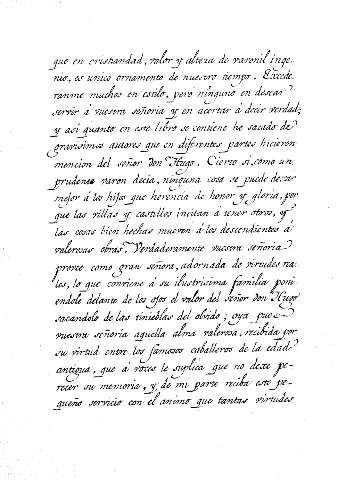 que en cristiandad, valor y alteza de varonil inge-
nio, es unico ornamento de nuestro tiempo. Excede-
ranme muchos en estilo, pero ninguno en desear
servir á vuestra señoria y en acertar á decir verdad;
y asi quanto en este libro se contiene he sacado de
gravisimos autores que en diferentes partes hicieron
mencion del señor don Hugo. Cierto si, como un
prudente varon decia, ninguna cosa se puede dexar
mejor á los hijos que herencia de honor y gloria, por
que las villas y castillos incitan á tener otros, y
las cosas bien hechas mueven á los descendientes á
valerosas obras. Verdaderamente vuestra señoria
provee como gran señora, adornada de virtudes rea-
les, lo que conviene á su ilustrisima familia poni-
endole delante de los ojos el valor del señor don Hugo
sacandolo de las tinieblas del olvido; oya pues
vuestra señoria aquella alma valerosa, recibida por
su virtud entre los famosos caballeros de la edad
antigua, que á voces le suplica que no dexe pe-
recer su memoria, y de mi parte reciba este pe-
queño servicio con el animo que tantas virtudes